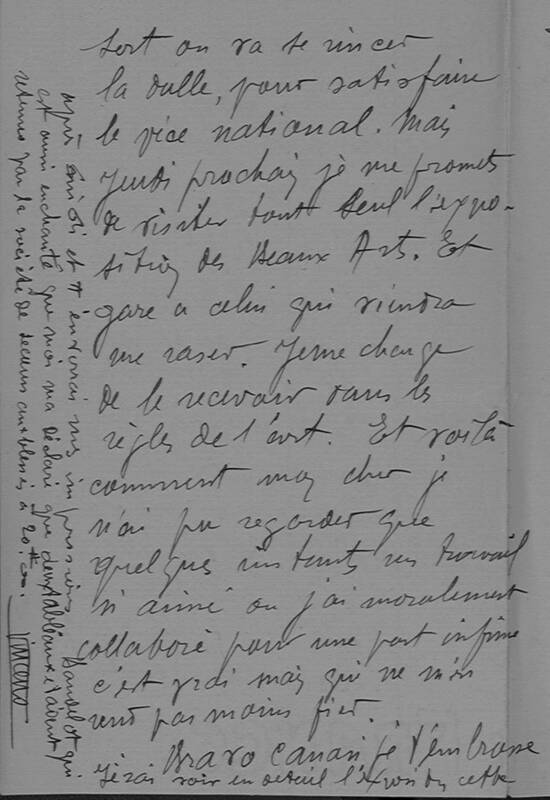 sort on va se rincer
la dalle, pour satisfaire
le vice national. Mais
jeudi prochain je me promets
de visiter tout seul l'expo-
sition des Beaux Arts. Et
gare a celui qui viendra
me raser. Je me charge
de le recevoir dans les
règles de l'art. Et voilà
comment mon cher je
n'ai pu regarder que
quelques instants un travail
si aimé ou j'ai moralement
collaboré pour une part infime
c'est vrai mais qui ne m'en
rend pas moins fier.
Bravo Canari je t'embrasse
J'irai voir en detail l'expon des cette
après midi et t'enverrai mes impressions Baudelot qui
est aussi enchanté que moi m'a déclaré que deux tableaux étaient
retenus par la société de secours aux blessés a 20